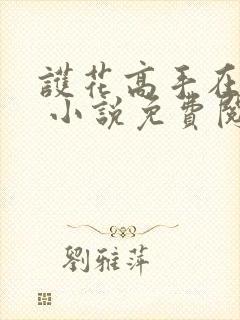 護花高手在
小說免費閱
劉雅萍